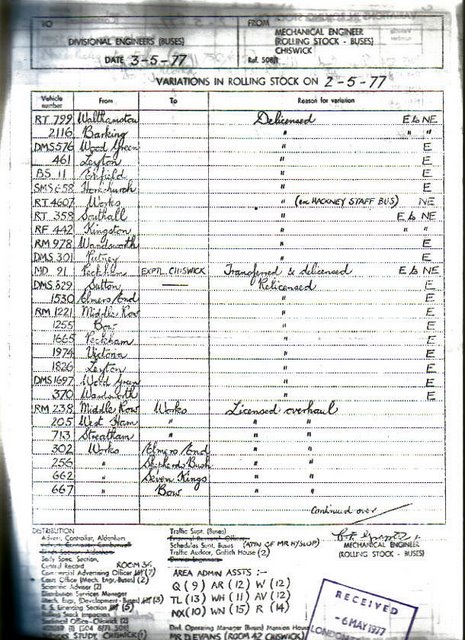 TO
FROM
DIVISIONAL ENGINEERS (BUSES)
MECHANICAL ENGINEER
(ROLLING STOCK - BUSES)
CHISWICK
DATE 3-5-77
Ref. 508/1
VARIATIONS IN ROLLING STOCK ON 2-5-77
Vehicle number From To Reason for variation
RT 799 Walthamstow Delicensed E to NE
2116 Barking " " "
DMS 576 Wood Green " E
461 Leyton " E
BS 11 Enfield " E
SMS 658 Hornchurch " E
RT 4607 Works " (ex HACKNEY STAFF BUS) NE
RT 358 Southall " E to NE
RF 442 Kingston " " "
RM 978 Wandsworth " E
DMS 301 Putney " E
MD 91 Peckham EXPTL. CHISWICK Transferred & delicensed E to NE
DMS 829 Sutton — Relicensed E
1530 Elmers End " E
RM 1221 Middle Row " E
1255 Bow " E
1665 Peckham " E
1974 Victoria " E
1826 Leyton " E
DMS 1697 Wood Green " E
370 Wandsworth " E
RM 238 Middle Row Works Licensed overhaul
205 West Ham " " "
713 Streatham " " "
302 Works Elmers End " "
256 " Shepherds Bush " "
662 " Seven Kings " "
667 " Bow " "
Continued over
DISTRIBUTION
Traffic Supt. (Buses)
Advert. Controller, Aldenham
Schedules Supt. Buses (ATTN OF MR HYSLOP)
MECHANICAL ENGINEER
(ROLLING STOCK - BUSES)
Traffic Auditor, Griffith House (2)
Body Spec. Section,
Central Record ROOM 34
Commercial Advertising Officer (7)
AREA ADMIN ASSTS :-
Costs Office (Mech. Engr. Buses) (2)
Scientific Adviser (2)
Q (9) AR (12) W (12)
Distribution Services Manager
TL (13) WH (11) AV (12)
Mech. Engr. (Development - Buses) (3)
R. S. Licensing Section (5)
NX (10) WN (15) R (14)
Rolling Stock Inspectors
Sectional Office - Chiswick (2)
Divl. Operating Manager (Buses)
STUDY CHISWICK (1)
MR D EVANS (ROOM 42 CHISWICK)
RECEIVED
-6 MAY 1977